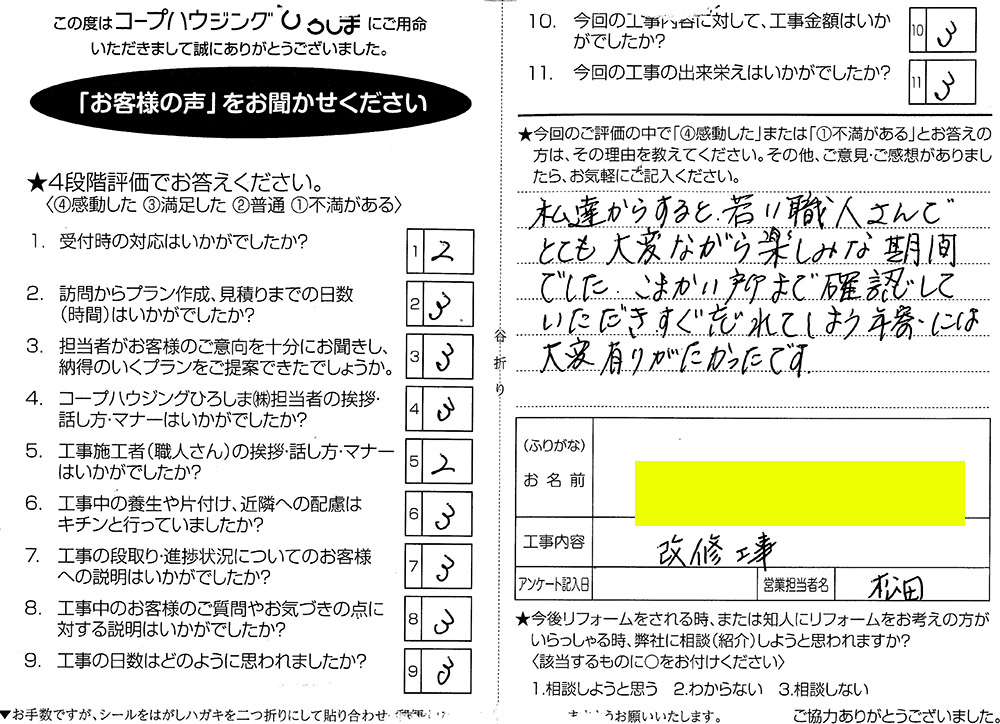 この度はコープハウジングひろしまにご用命
いただきまして誠にありがとうございました。
「お客様の声」をお聞かせください
★4段階評価でお答えください。
〈④感動した ③満足した ②普通 ①不満がある〉
1. 受付時の対応はいかがでしたか?
1 2
2. 訪問からプラン作成、見積りまでの日数
(時間)はいかがでしたか?
2 3
3. 担当者がお客様のご意向を十分にお聞きし、
納得のいくプランをご提案できたでしょうか。
3 3
4. コープハウジングひろしま㈱担当者の挨拶・
話し方・マナーはいかがでしたか?
4 3
5. 工事施工者(職人さん)の挨拶・話し方・マナー
はいかがでしたか?
5 2
6. 工事中の養生や片付け、近隣への配慮は
キチンと行っていましたか?
6 3
7. 工事の段取り・進捗状況についてのお客様
への説明はいかがでしたか?
7 3
8. 工事中のお客様のご質問やお気づきの点に
対する説明はいかがでしたか?
8 3
9. 工事の日数はどのように思われましたか?
9 3
▼お手数ですが、シールをはがしハガキを二つ折りにして貼り合わせ
谷折り
10. 今回の工事内容に対して、工事金額はいか
がでしたか?
10 3
11. 今回の工事の出来栄えはいかがでしたか?
11 3
★今回のご評価の中で「④感動した」または「①不満がある」とお答えの
方は、その理由を教えてください。その他、ご意見・ご感想がありまし
たら、お気軽にご記入ください。
私達からすると、若い職人さんで
とても大変ながら楽しみな期間
でした。こまかい所まで確認して
いただきすぐ忘れてしまう年寄りには
大変有りがたかったです
(ふりがな)
お名前
工事内容 改修工事
アンケート記入日 営業担当者名 松田
★今後リフォームをされる時、または知人にリフォームをお考えの方が
いらっしゃる時、弊社に相談(紹介)しようと思われますか?
〈該当するものに○をお付けください〉
1.相談しようと思う 2.わからない 3.相談しない
ようお願いいたします。 ご協力ありがとうございました。